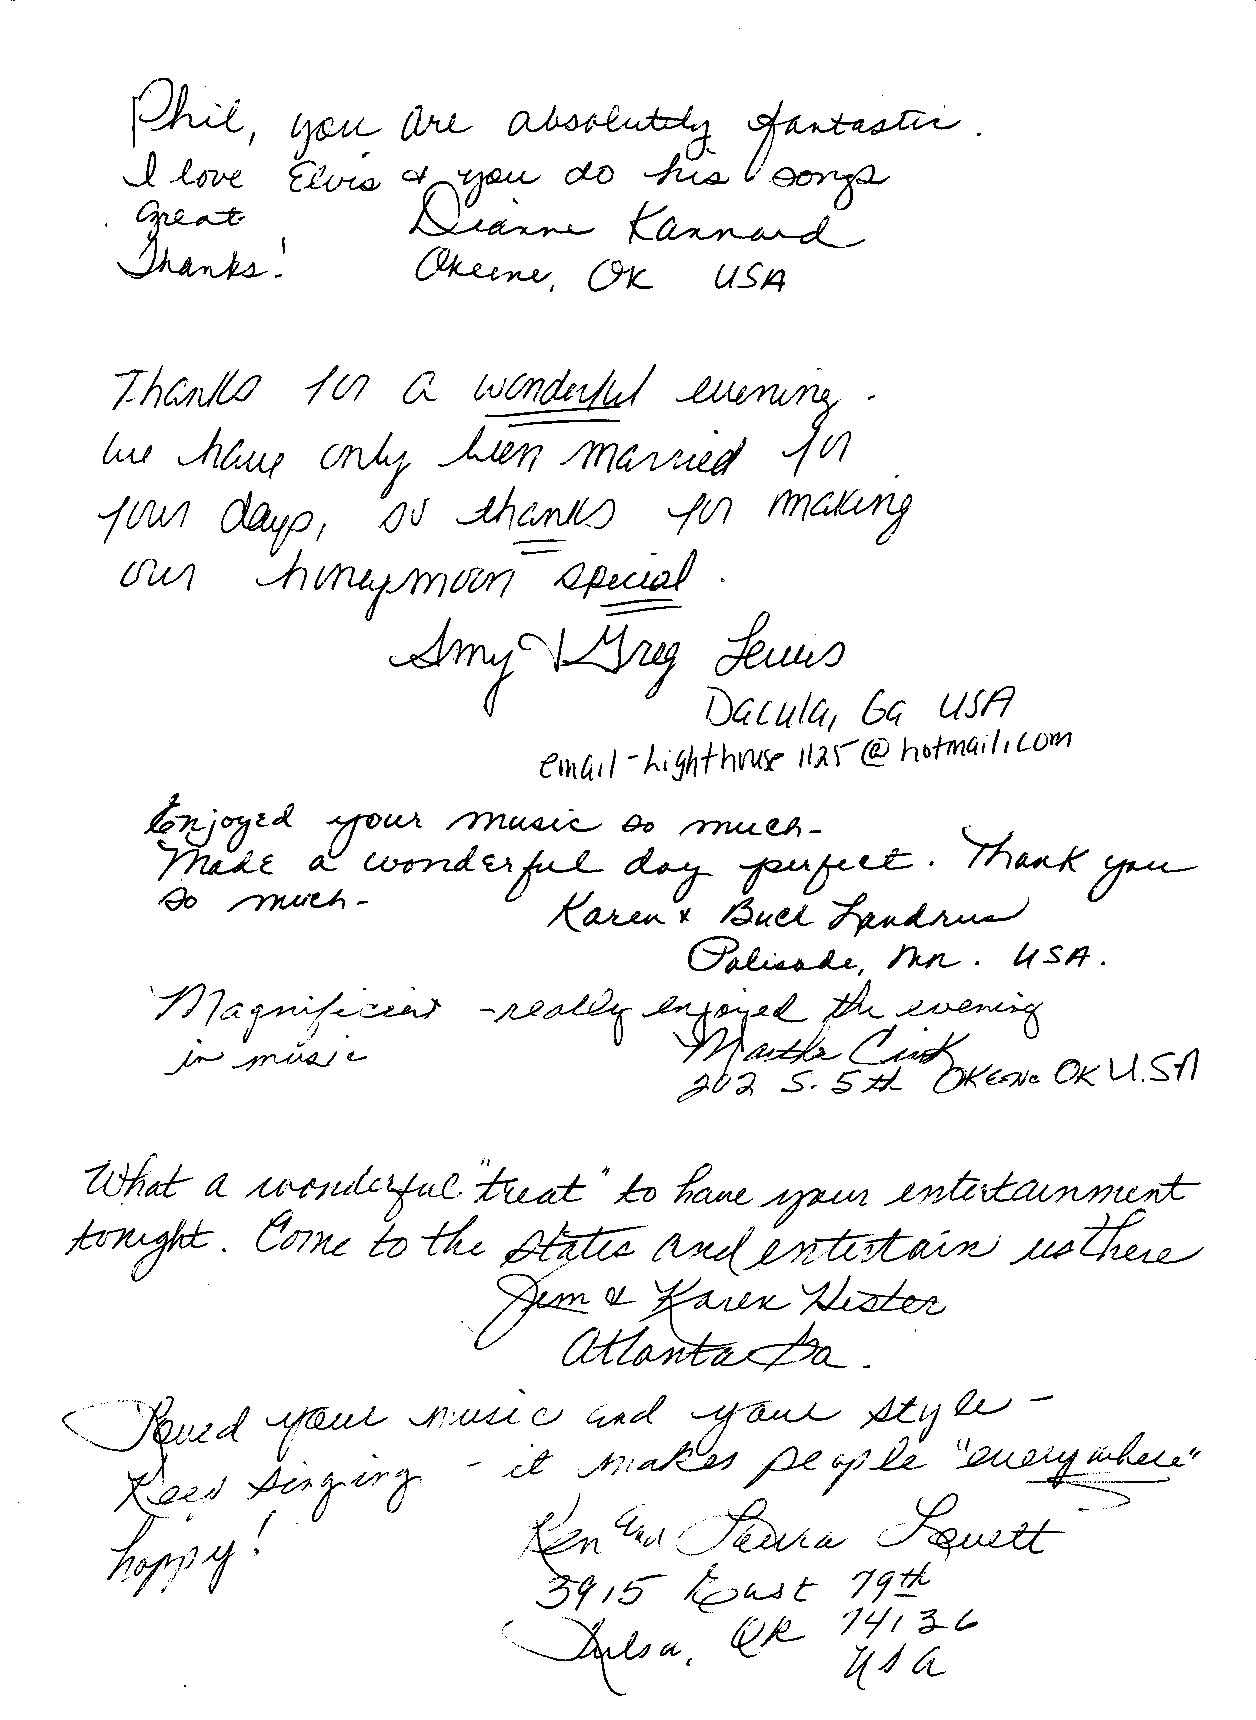 Phil, you are absolutely fantastic.
I love Elvis & you do his songs
great
Thanks!
Dianne Kannard
Okeene, OK USA
Thanks for a wonderful evening.
We have only been married for
four days, so thanks for making
our honeymoon special.
Amy & Greg Lewis
Dacula, Ga USA
email - lighthouse1125@hotmail.com
Enjoyed your music so much -
Made a wonderful day perfect. Thank you
so much -
Karen & Buck Landrus
Palisade, Mn. USA.
Magnificent - really enjoyed the evening
in music
Martha
202 S. 5th Okeene OK U.S.A
What a wonderful "treat" to have your entertainment
tonight. Come to the States and entertain us there
Jim & Karen Hester
Atlanta Ga.
Loved your music and your style -
Keep singing - it makes people "everywhere"
happy!
Ken and Laura Lovett
3915 East 79th
Tulsa, OK 74136
USA